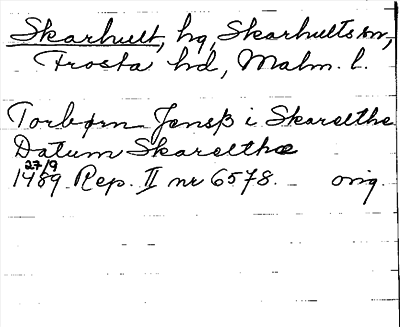 Skarhult, hg, Skarhults sn,
Frosta hd, Malm. l.
Torbørn Jensβ i Skarelthe
Datum Skarelthæ
27/9
1489 Rep. II nr 6578. orig.